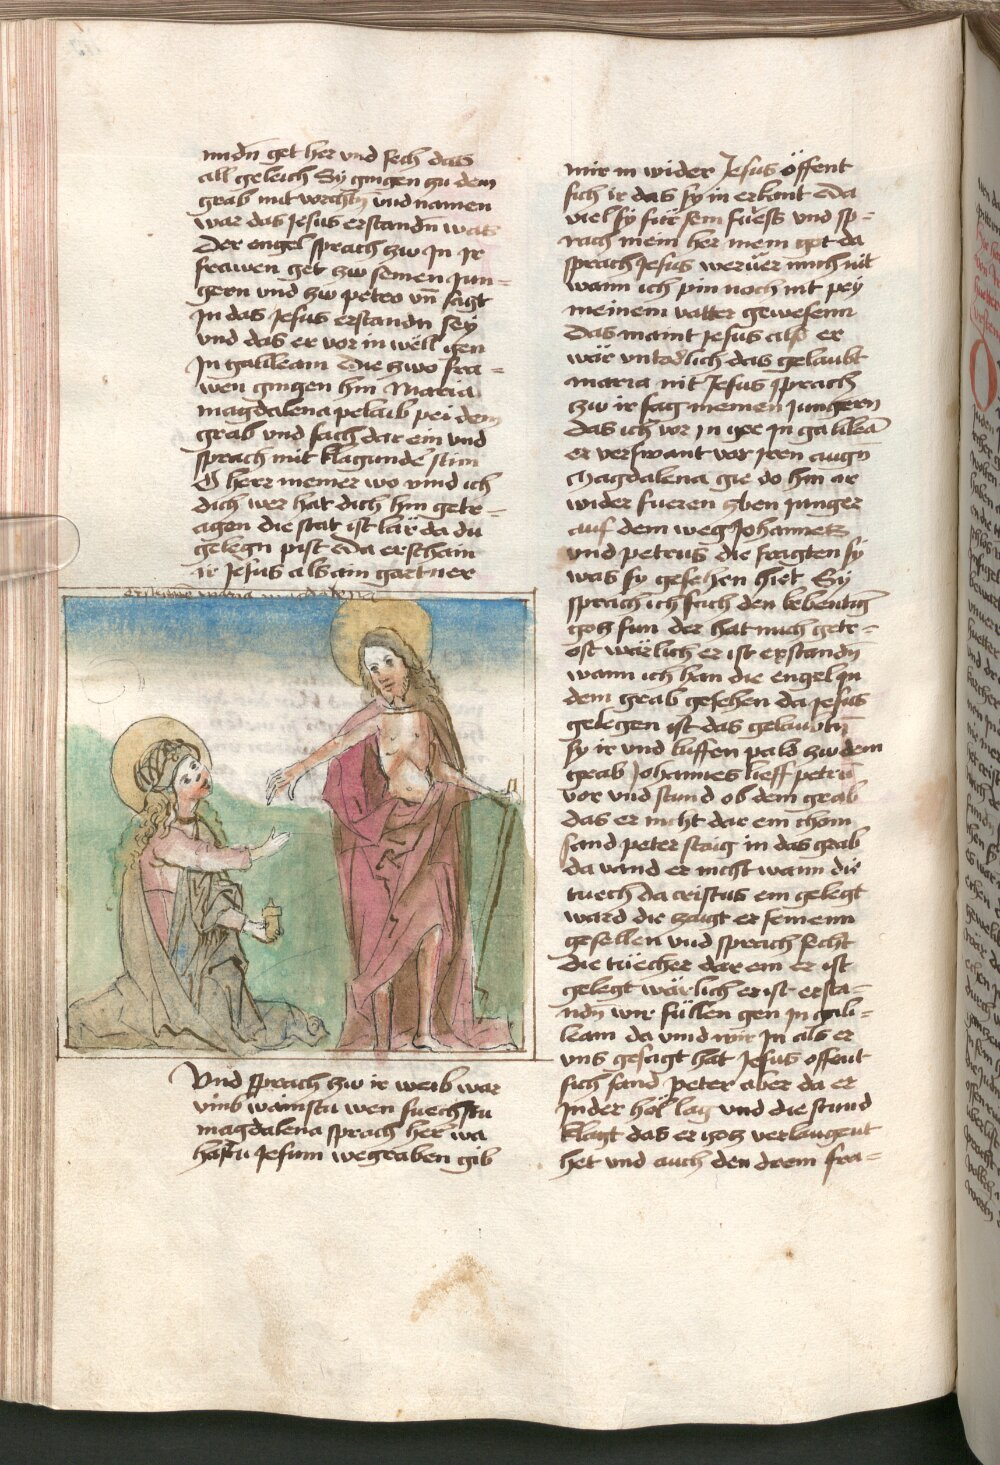 nndn get her vnd sech das
all geleich Sy gingen zu dem
grab mit vorchtn vnd namen
war das Jesus erstandn was
Der engel sprach zw In Ir
frawen get zw seinen Jun-
gern vnd zw petro vn̄ sagt
In das Jesus erstandn seÿ
vnd das er vor in wëll gen
In galileam Die zwo fra-
wen gingen hin Maria
magdalena pelaib pei dem
grab vnd sach dar ein vnd
sprach mit klagunde stim
O herr meiner wo vind ich
dich wer hat dich hin getr-
agen die stat ist lär da du
gelegn pist Da erschain
ir Jesus als ain gartner
maria magdalena
Vnd sprach zw ir weib war
vmb wainstu wen suechstu
magdalena sprach her wa
hastu Jesum wegraben gib
mir in wider Jesus öffent
sich ir das sy in erkant Da
viel sy für sein füess vnd sp-
rach mein her mein got da
sprach Jesus mich nit
wann ich pin noch nit pey
meinem vatter gewesenn
Das maint Jesus also er
wär vntodlich das gelaubt
maria nit Jesus sprach
zw ir sag meinen Jungern
das ich vor In gee In galileā
er verswant vor iren augn
Magdalena gie do hin ar
wider fueren zben Junger
auf dem weg Johannes
vnd petrus die fragten sy
was sy gesehen hiet Sy
sprach ich sach den lebentiḡ
gotz sun der hat mich getr-
öst wärlich er ist erstandn̄
wann ich han die engel In
dem grab gesehen da Jesus
gelegen ist das gelaubtn̄
sy ir vnd luffen pald zw dem
grab Johannes lieff petrū
vor vnd stund ob dem grab
das er nicht dar ein chom
sand peter staig in das grab
da vand er nicht wann die
tuech da cristus ein gelegt
ward die zaigt er seinenn
gesellen vnd sprach secht
die tüecher dar ein er ist
gelegt wärlich er ist ersta-
ndn̄ wir süllen gen In gali-
leam da vind wir In als er
vns gesagt hat Jesus offent
sich sand peter aber da er
In der höl lag vnd die stund
klagt das er gotz verlaugent
het vnd auch den drein fra-